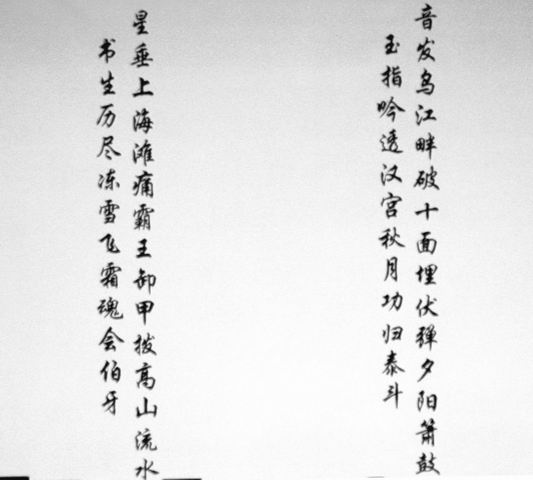 音发乌江畔破十面埋伏弹夕阳箫鼓
玉指吟透汉宫秋月功归泰斗
星垂上海滩痛霸王卸甲拨高山流水
书生历尽冻雪飞霜魂会伯牙